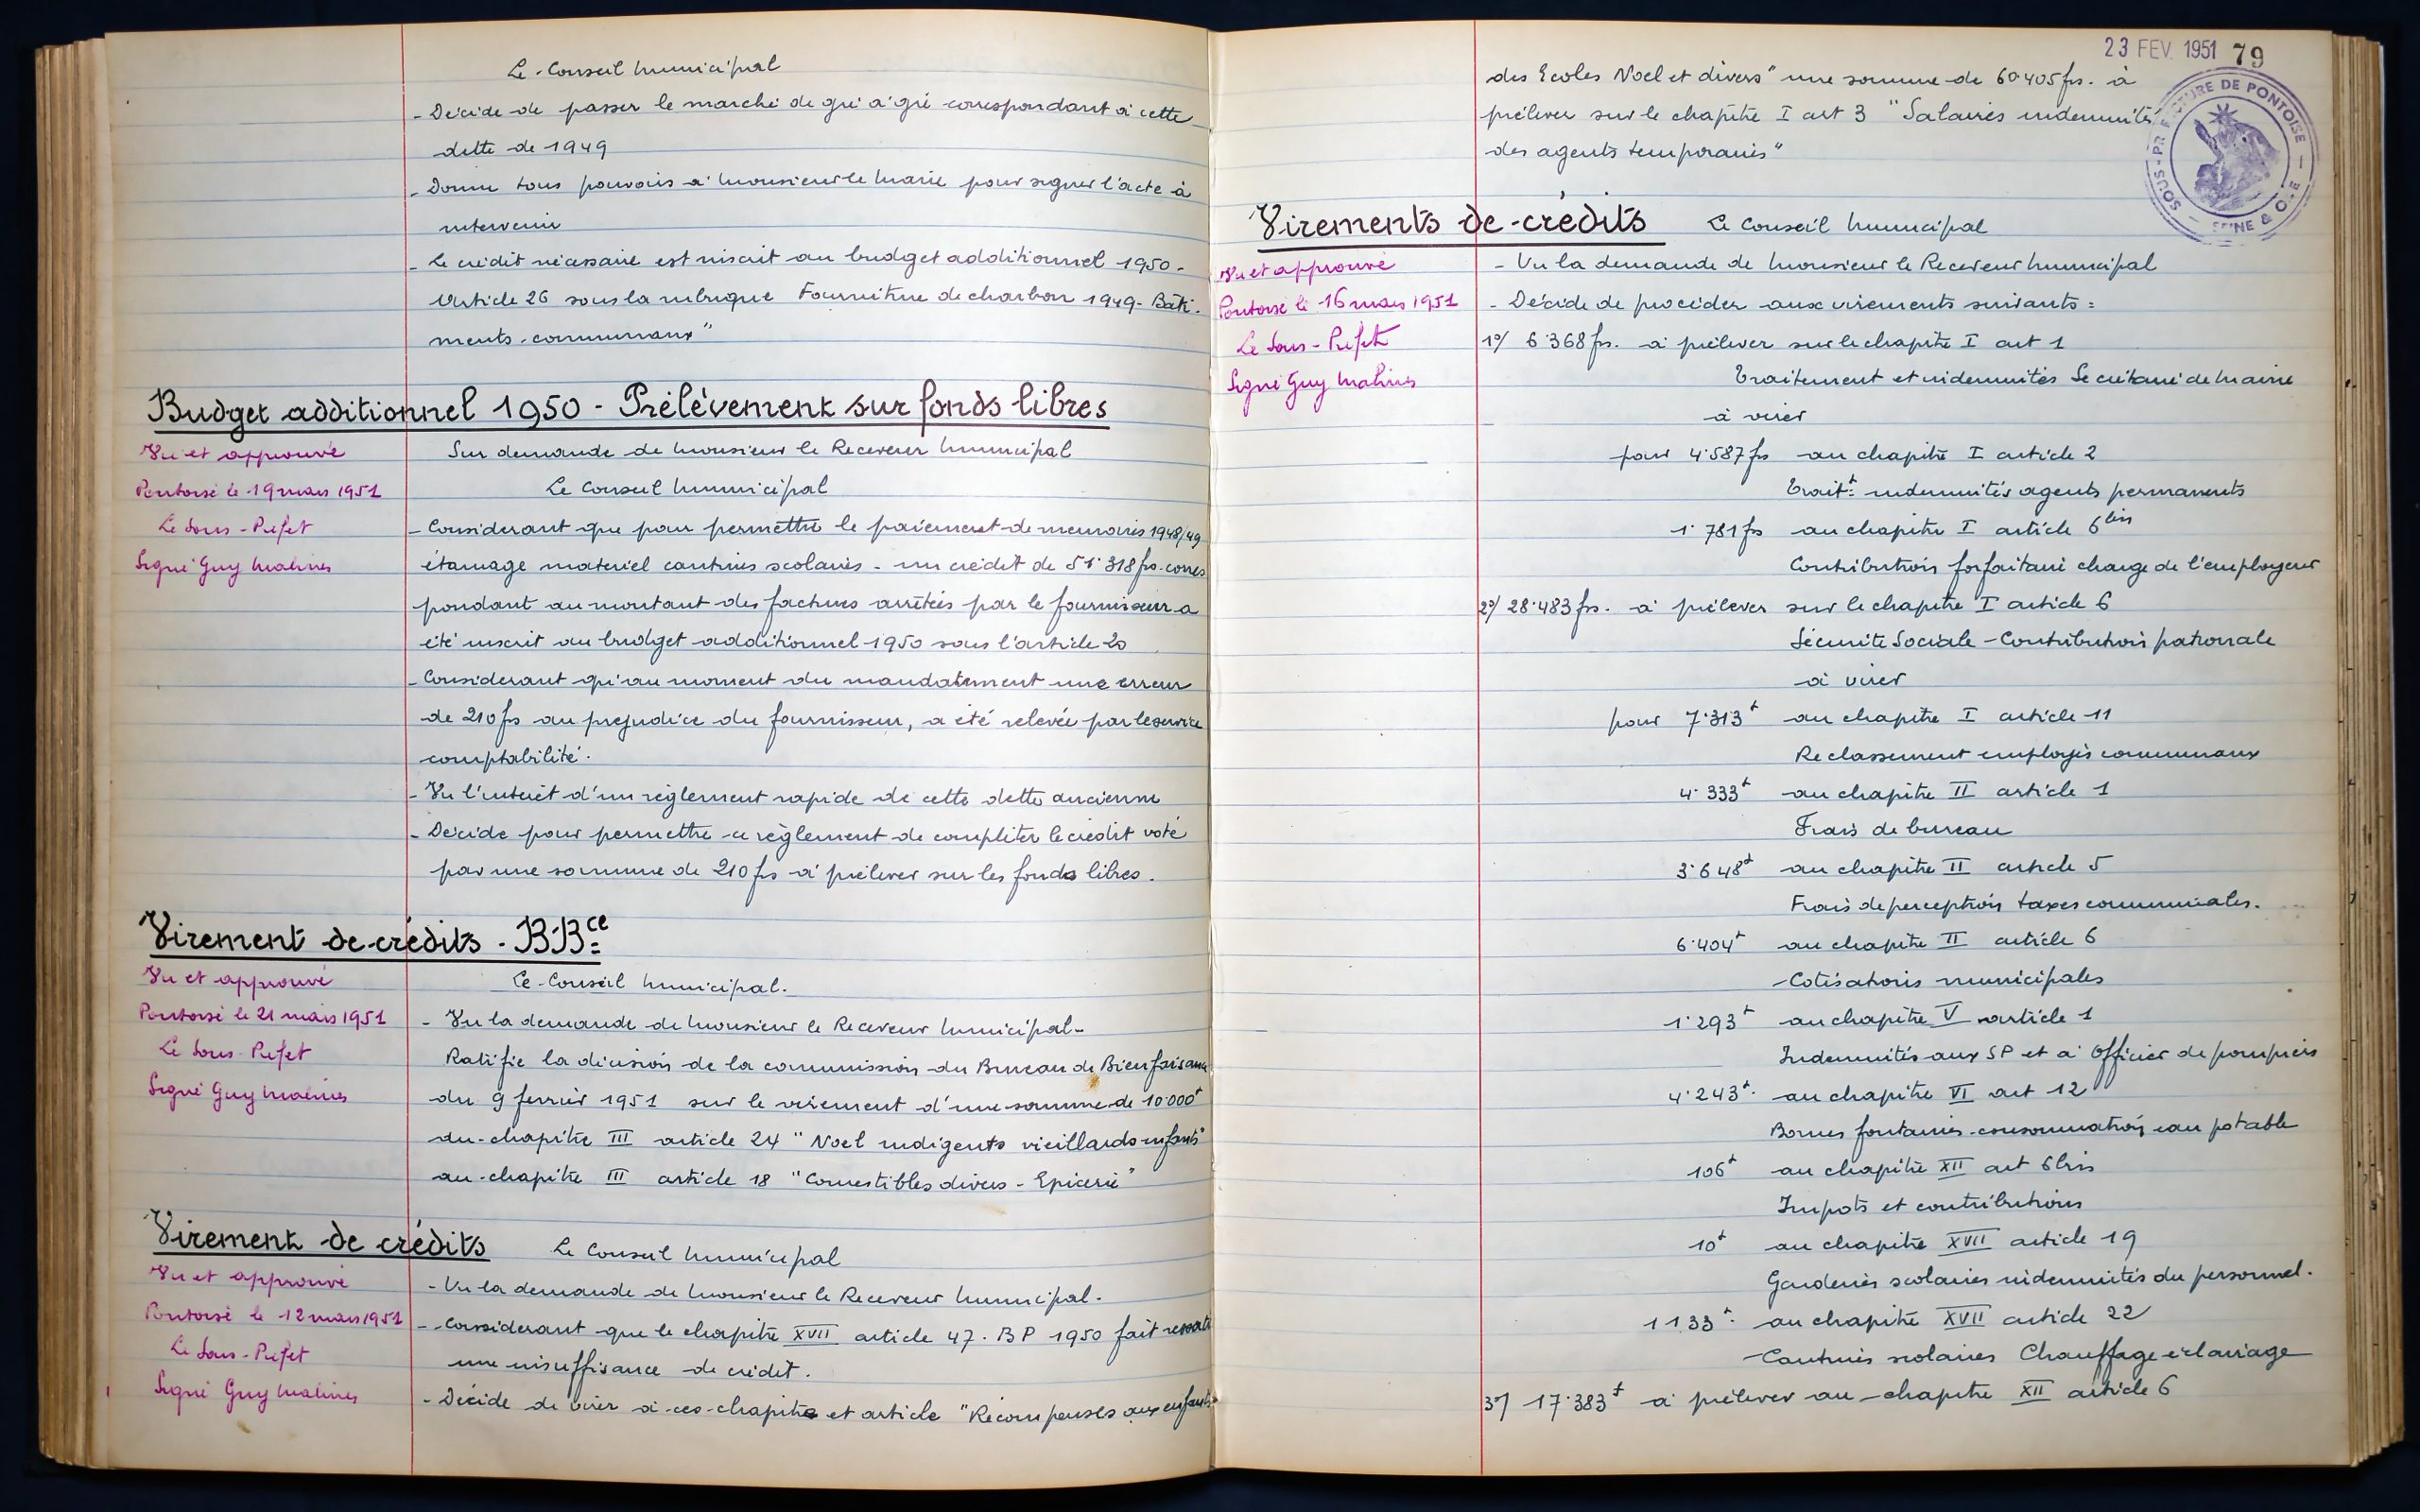 Le Conseil Municipal
- Décide de passer le marché de gré à gré correspondant à cette
dette de 1949
- Donne tous pouvoirs à Monsieur le Maire pour signer l'acte à
intervenir
- Le crédit nécessaire est inscrit au budget additionnel 1950 -
Article 26 sous la rubrique Fourniture de charbon 1949 - Bâti-
ments communaux"
Budget additionnel 1950 - Prélèvement sur fonds libres
Vu et approuvé
Pontoise le 19 mars 1951
Le Sous-Préfet
Signé Guy Malines
Sur demande de Monsieur le Receveur Municipal
Le Conseil Municipal
- Considerant que pour permettre le paiement de memoires 1948/49
étamage materiel cantines scolaires - un crédit de 51.318 frs. corres
pondant au montant des factures arrêtées par le fournisseur a
été inscrit au budget additionnel 1950 sous l'article 20
- Considerant qu'au moment du mandatement une erreur
de 210 frs au prejudice du fournisseur, a été relevée par le service
comptabilité.
- Vu l'interêt d'un règlement rapide de cette dette ancienne
- Décide pour permettre ce règlement de compléter le crédit voté
par une somme de 210 frs à prélever sur les fonds libres.
Virement de crédits - B.Bce
Vu et approuvé
Pontoise le 21 mars 1951
Le Sous-Préfet
Signé Guy Malines
Le Conseil Municipal.
- Vu la demande de Monsieur le Receveur Municipal -
Ratifie la décision de la commission du Bureau de Bienfaisance
du 9 fevrier 1951 sur le virement d'une somme de 10.000f
du chapitre III article 24 "Noel indigents vieillards enfants"
au chapitre III article 18 "Comestibles divers - Epicerie"
Virement de crédits
Le Conseil Municipal
Vu et approuvé
Pontoise le 12 mars 1951
Le Sous-Préfet
Signé Guy Malines
- Vu la demande de Monsieur le Receveur Municipal.
- Considerant que le chapitre XVII article 47. BP 1950 fait
une insuffisance de crédit.
- Décide de virer à ces chapitre et article "Récompenses aux enfants
23 FEV. 1951 79
des Ecoles Noel et divers" une somme de 60.405 frs. à
prélever sur le chapitre I art 3 "Salaires indemnités
des agents temporaires"
SOUS-PREFECTURE DE PONTOISE
SEINE & OISE
Virements de crédits
Le Conseil Municipal
Vu et approuvé
Pontoise le 16 mars 1951
Le Sous-Préfet
Signé Guy Malines
- Vu la demande de Monsieur le Receveur Municipal
- Décide de procéder aux virements suivants :
1°/ 6.368 frs. à prélever sur le chapitre I art 1
Traitement et indemnités Secrétaire de Mairie
à virer
pour 4.587 frs au chapitre I article 2
Trait.t indemnités agents permanents
1.781 frs au chapitre I article 6 bis
Contribution forfaitaire charge de l'employeur
2°/ 28.483 frs. à prélever sur le chapitre I article 6
Sécurité Sociale - Contribution patronale
à virer
pour 7.313f au chapitre I article 11
Reclassement employés communaux
4.333f au chapitre II article 1
Frais de bureau
3.648f au chapitre II article 5
Frais de perception taxes communales.
6.404f au chapitre II article 6
Cotisations municipales
1.293f au chapitre V article 1
Indemnités aux SP et à Officier de pompiers
4.243f. au chapitre VI art 12
Bornes fontaines consommation eau potable
106f au chapitre XII art 6 bis
Impots et contributions
10f au chapitre XVII article 19
Garderies scolaires indemnités du personnel.
1133f. au chapitre XVII article 22
Cantines scolaires Chauffage éclairage
3°/ 17.383f à prélever au chapitre XII article 6